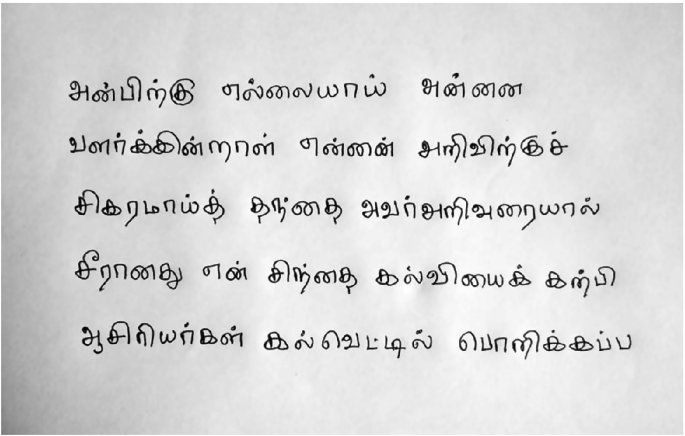 அன்பிற்கு எல்லையாய் அன்னை
வளர்க்கின்றாள் என்னை அறிவிற்குச்
சிகரமாய்த் தந்தை அவர்அறிவுரையால்
சீரானது என் சிந்தை கல்வியைக் கற்பி
ஆசிரியர்கள் கல்வெட்டில் பொறிக்கப்ப